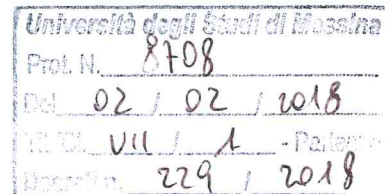 Università degli Studi di Messina
Prot. N. 8708
Del 02 / 02 / 2018
VII / 1 - Partenza
229 / 2018